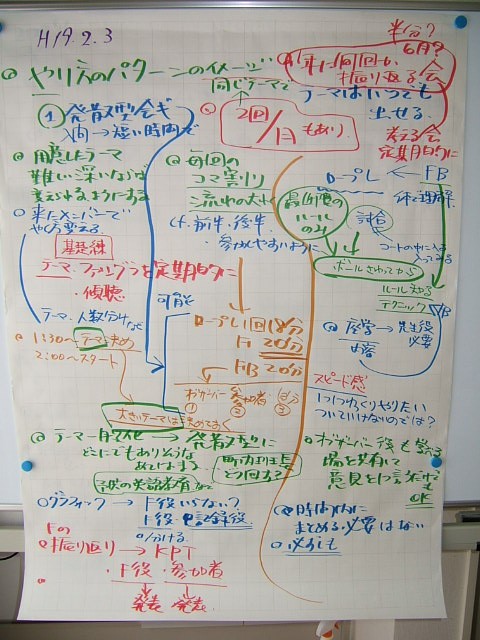 H19.2.3
半分?
6月?
@ やり方のパターンのイメージ
年に何回か
振り返る会
同じテーマで
テーマはいつでも
出せる
2回/1日もあり
考える会
定期的に
① 発散型会ギ
短い時間で
@ 用意したテーマ
難しい深いならば
変えられるようにする
@ 毎回の
コマ割り
流れの大く
前半、後半
・参加しやすいように
ロープレ ← FB
体で理解
最低限の
ルール
のみ
試合
コートの中に入る
ボールさわってから
ルール知る
テクニック
基礎練
テーマ・ファシグラを定期的に
・傾聴
テーマ・人数分けなど
可能
ロープレ1回18分
F 20分
FB 20分
オブザーバー 参加者 自分
① ② ③
@ 座学→先生役
必要
@ 1:30〜テーマ決め
2:00〜スタート
大きいテーマは決めておく
スピード感
1つ1つゆっくりやりたい
ついていけないのでは?
@ テーマ一般化→発散型に
どこにでもありそうな
@ オブザーバー後も
場を共有して
意見を口に出すだけでも
OK
○グラフィック→F役いらない?
F役・記録役
○分ける
@時間内に
まとめる必要はない
○必ずしも
Fの
@振り返り→KPT
・F役・参加者
発表 発表